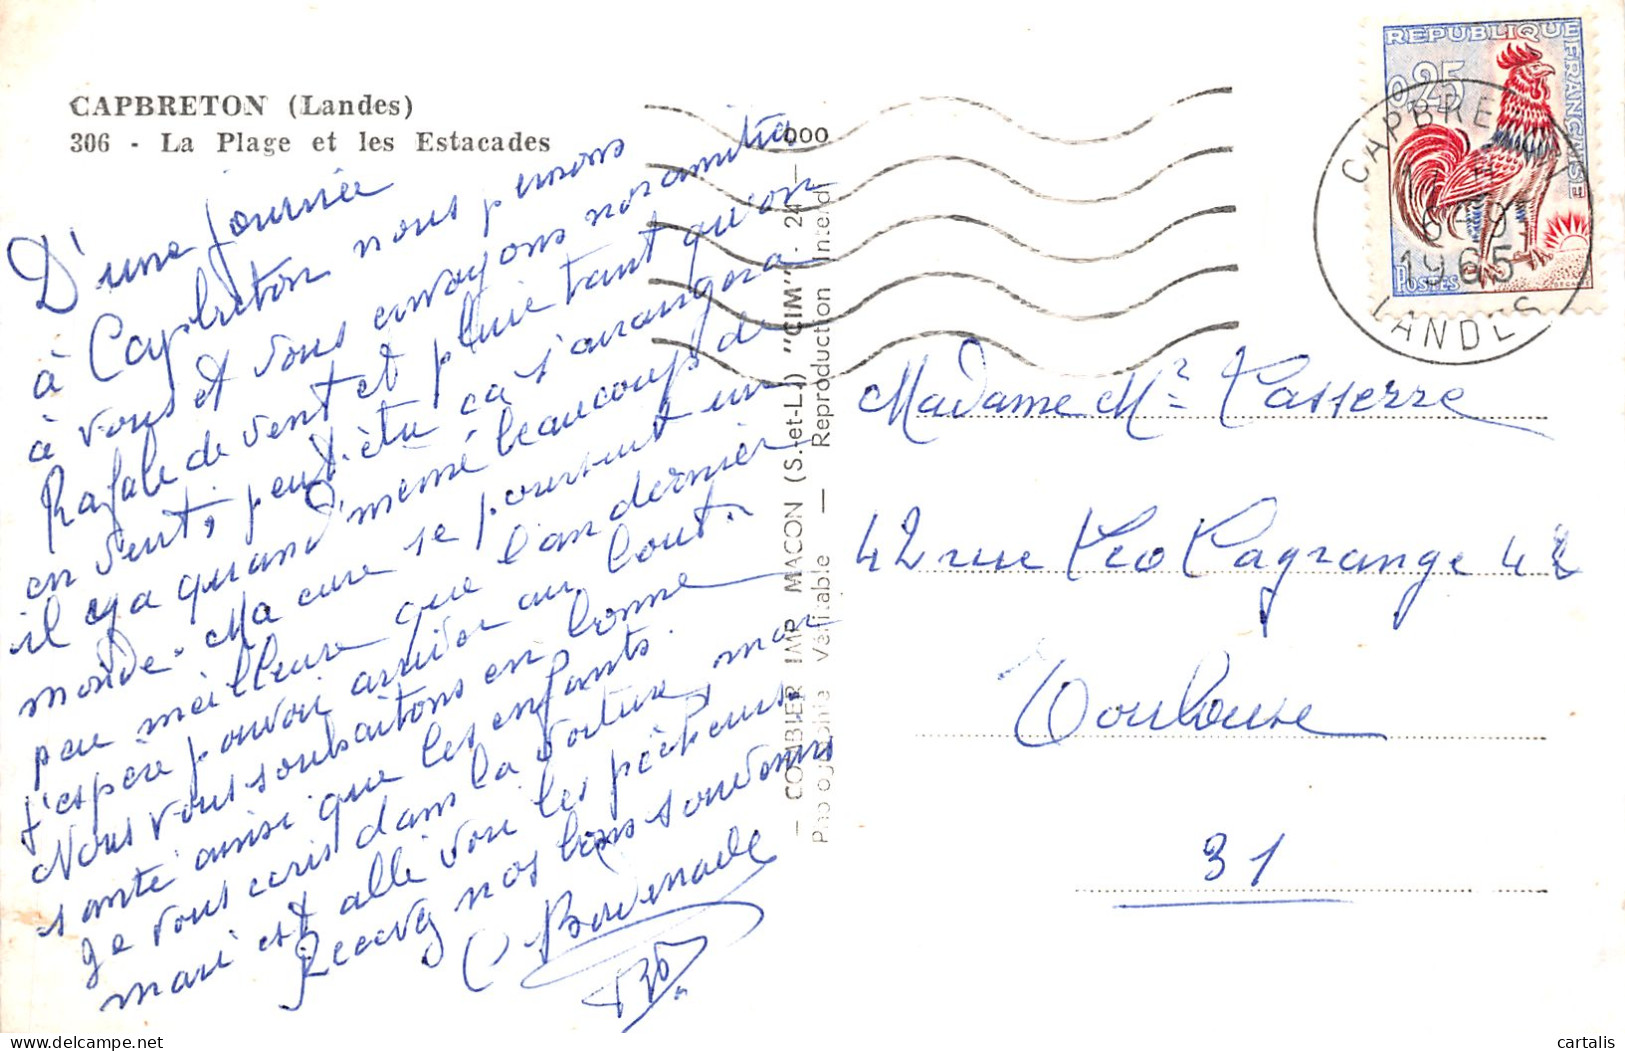 CAPBRETON (Landes)
306 - La Plage et les Estacades
D'une journée
à Capbreton nous pensons
à vous et vous envoyons nos amitiés
Rafale de vent et pluie tant qu'on
en veut, peut-être ça s'arrangera
il y a quand même beaucoup de
monde. Ma cure se poursuit un
peu meilleure que l'an dernier
j'espère pouvoir arriver au bout.
Nous vous souhaitons en bonne
santé ainsi que les enfants.
Je vous écris dans la voiture, mon
mari est allé voir les pêcheurs
Recevez nos bons souvenirs
COMBIER IMP. MACON (S.-et-L.) "CIM"
Photographie Véritable — Reproduction Interdi
REPUBLIQUE FRANÇAISE
0,25
POSTES
CAPBRETON
1965
LANDES
000
Madame Mr Lasserre
42 rue Léo Lagrange 42
Toulouse
31
cartalis